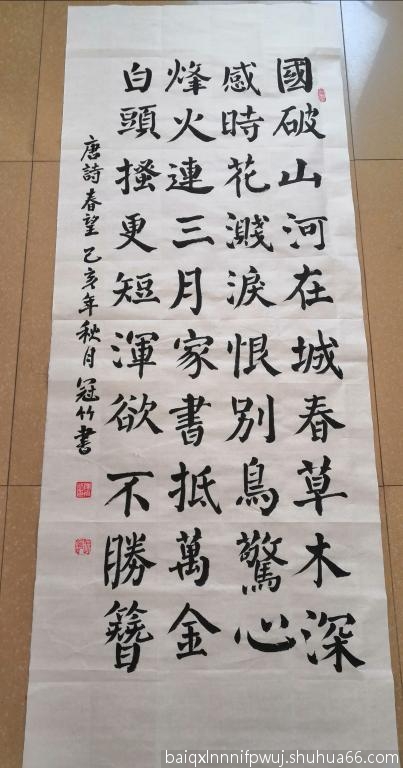 國破山河在城春草木深
感時花濺淚恨別鳥驚心
烽火連三月家書抵萬金
白頭搔更短渾欲不勝簪
唐詩春望 乙亥年秋月 冠竹書
baiqxlnnnifpwuj.shuhua66.com